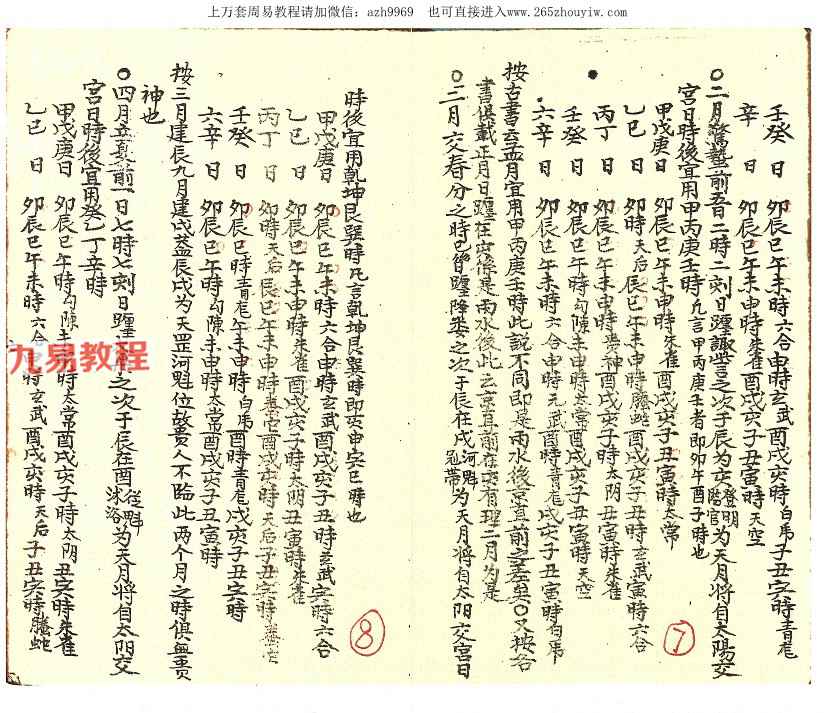 上万套周易教程请加微信：azh9969　也可直接进入www.265zhouyiw.com
壬癸日 卯辰巳午未時六合申時玄武酉戌亥時白虎子丑寅時青龍
辛日 卯辰巳午未申時朱雀酉戌亥子丑寅時天空
○二月驚蟄前五日二時二刻日躔諏訾之次于辰為亥登明臨官為天月將自太陽交
宮日時後宜用甲丙庚壬時凡言甲丙庚壬者即卯午酉子時也
甲戊庚日 卯辰巳午未申時朱雀酉戌亥子丑寅時太常
乙巳日 卯時天后辰巳午未申時螣蛇酉戌亥子丑時玄武寅時六合
丙丁日 卯辰巳午未申時貴神酉戌亥子時太阴丑寅時朱雀
壬癸日 卯辰巳午未申時太常酉戌亥子丑寅時天空
六辛日 卯辰巳午未時六合申時元武酉時青龍戌亥子丑寅時白虎
按古書云孟月宜用甲丙庚壬時此說不同即是雨水後京直前之差矣○又按各
書俱載正月日躔在亥後是雨水後此云京直前在亥有理二月為是
○三月交春分之時日躔降婁之次于辰在戌河魁冠帶為天月將自太阳交宮日
⑦
時後宜用乾坤艮巽時凡言乾坤艮巽時即亥申寅巳時也
甲戊庚日 卯辰巳午未時六合申時玄武酉戌亥子丑時玄武寅時六合
乙巳日 卯辰巳午未申時朱雀酉戌亥子時太阴丑寅時朱雀
丙丁日 卯時天后辰巳午未申時酉戌亥時天后子丑寅時
壬癸日 卯辰巳時青龍午未申時白虎酉時青龍戌亥子丑寅時
六辛日 卯辰巳午時勾陳未申時太常酉戌亥子丑寅時
按三月建辰九月建戌蓋辰戌為天罡河魁位故貴人不臨此两个月之時俱無貴
神也
○四月立夏前一日七時七刻日躔之次于辰在酉從魁沐浴為天月將自太阳交
宮日時後宜用癸乙丁辛時
甲戊庚日 卯辰巳午時勾陳未時太常酉戌亥子時太阴丑寅時朱雀
乙巳日 卯辰巳午未時六合時玄武酉戌亥時天后子丑寅時螣蛇
⑧
九易教程